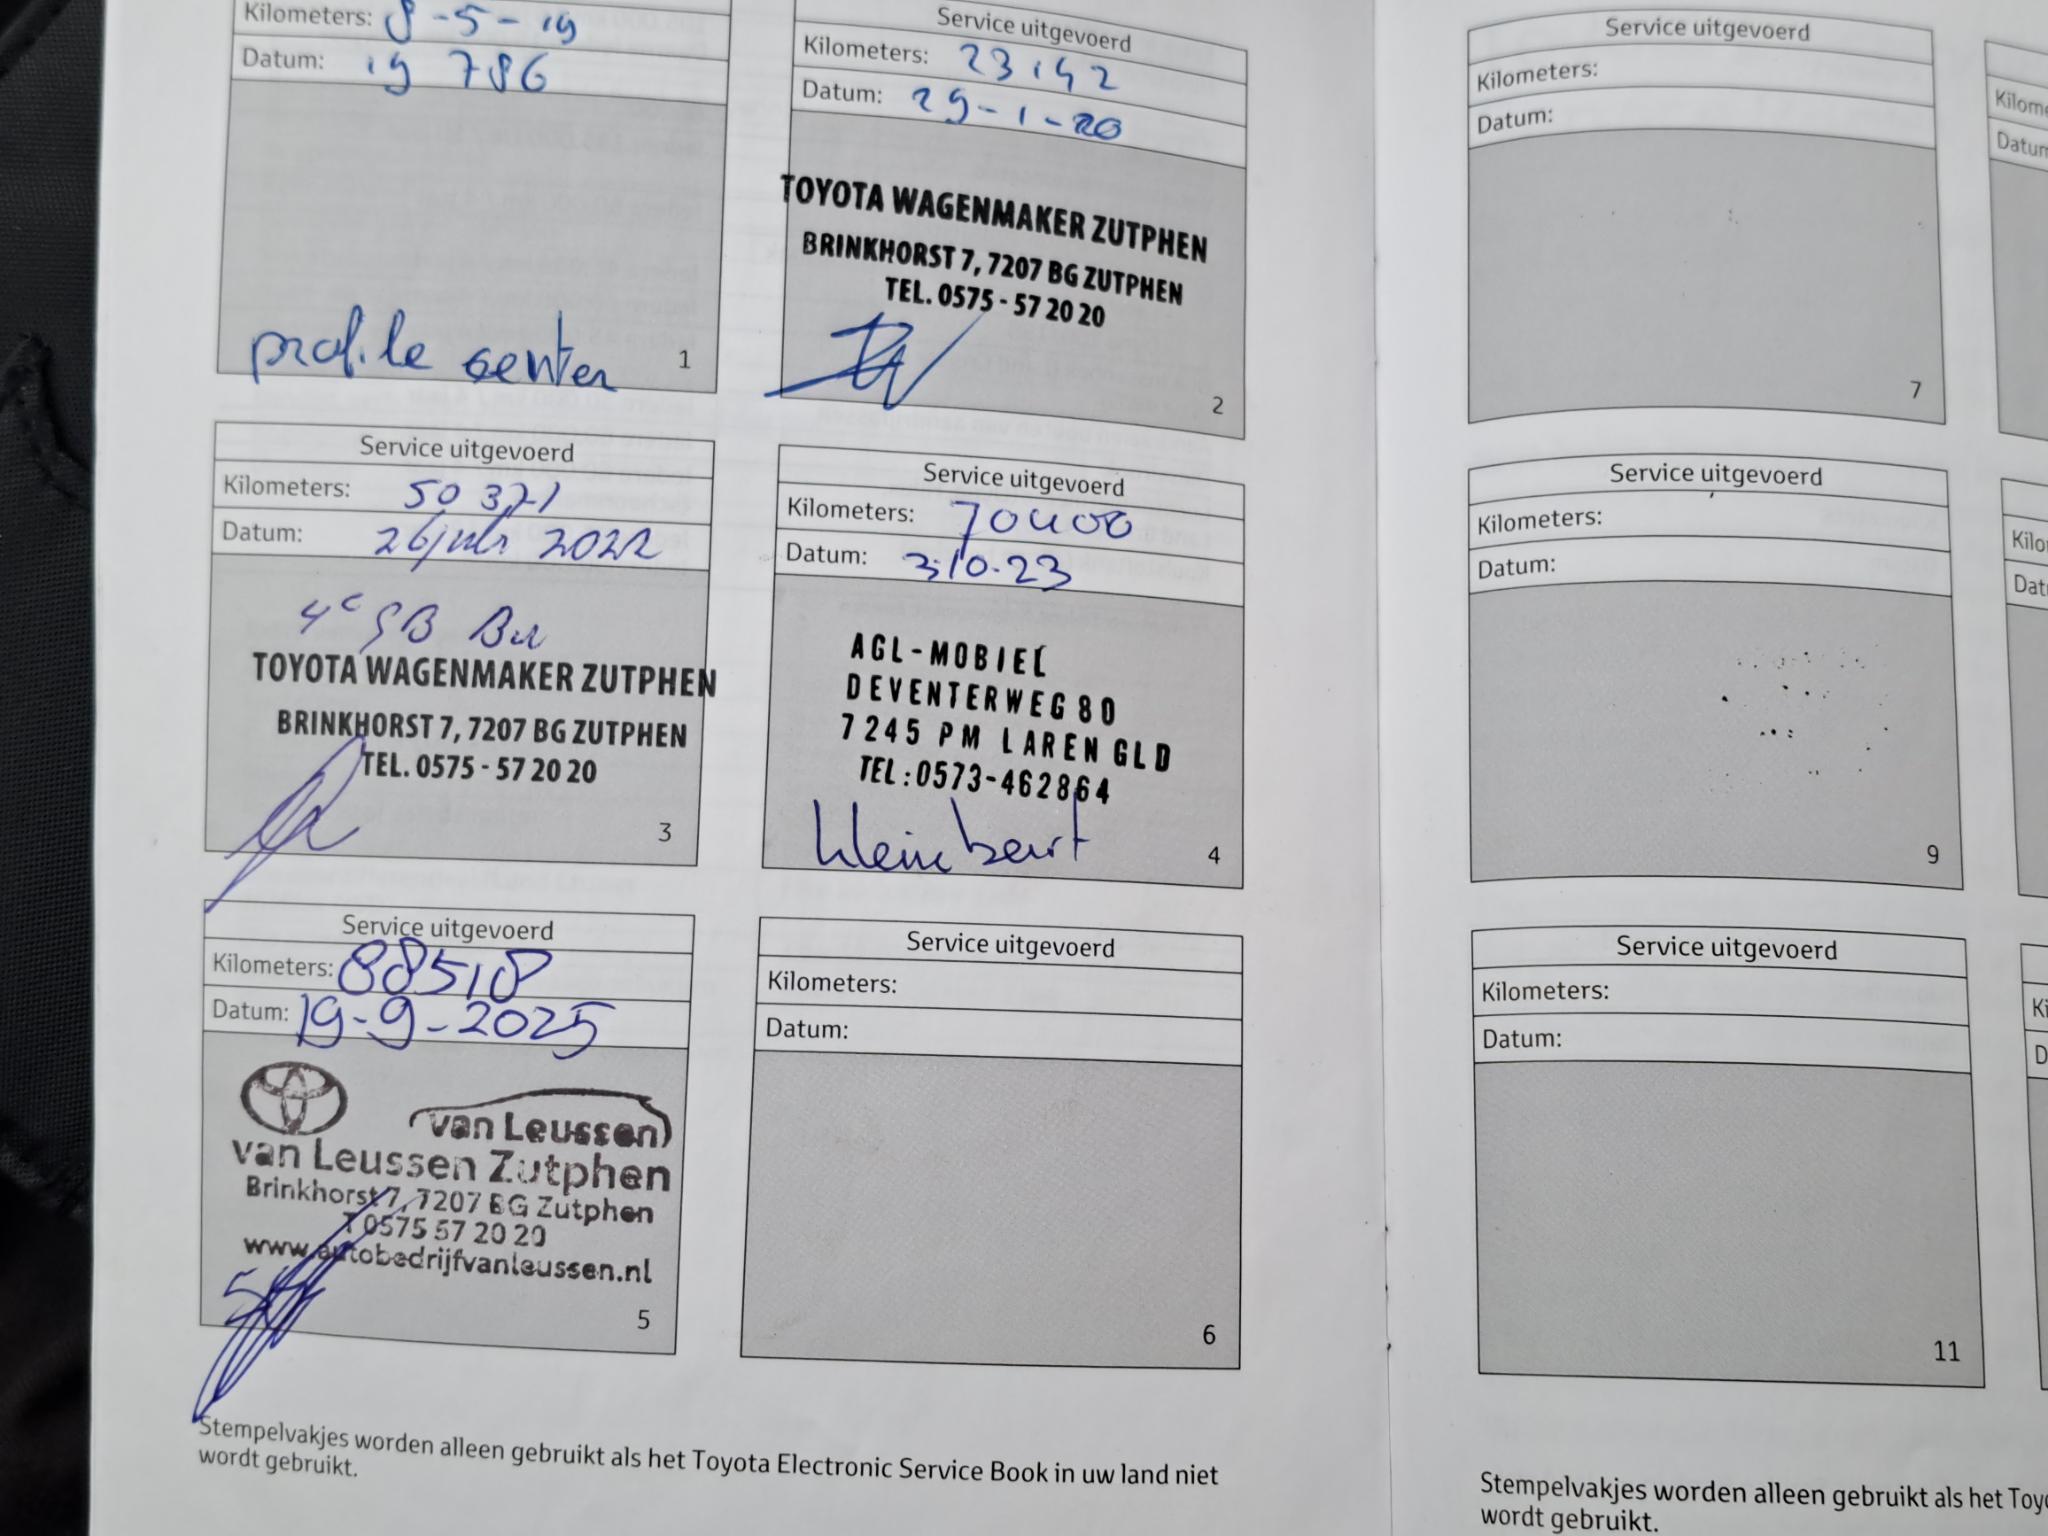 Kilometers: 8-5-19
Datum: 19 786
profile center
1
Service uitgevoerd
Kilometers: 23142
Datum: 29-1-20
TOYOTA WAGENMAKER ZUTPHEN
BRINKHORST 7, 7207 BG ZUTPHEN
TEL. 0575 - 57 20 20
2
Service uitgevoerd
Kilometers: 50 371
Datum: 26 juli 2022
TOYOTA WAGENMAKER ZUTPHEN
BRINKHORST 7, 7207 BG ZUTPHEN
TEL. 0575 - 57 20 20
3
Service uitgevoerd
Kilometers: 70400
Datum: 3-10-23
AGL-MOBIEL
DEVENTERWEG 80
7245 PM LAREN GLD
TEL:0573-462864
kleine beurt
4
Service uitgevoerd
Kilometers: 88518
Datum: 19-9-2025
van Leussen
van Leussen Zutphen
Brinkhorst 7, 7207 BG Zutphen
T 0575 57 20 20
www.autobedrijfvanleussen.nl
5
Service uitgevoerd
Kilometers:
Datum:
6
Stempelvakjes worden alleen gebruikt als het Toyota Electronic Service Book in uw land niet
wordt gebruikt.
Service uitgevoerd
Kilometers:
Datum:
7
Service uitgevoerd
Kilometers:
Datum:
9
Service uitgevoerd
Kilometers:
Datum:
11
Stempelvakjes worden alleen gebruikt als het Toyo
wordt gebruikt.